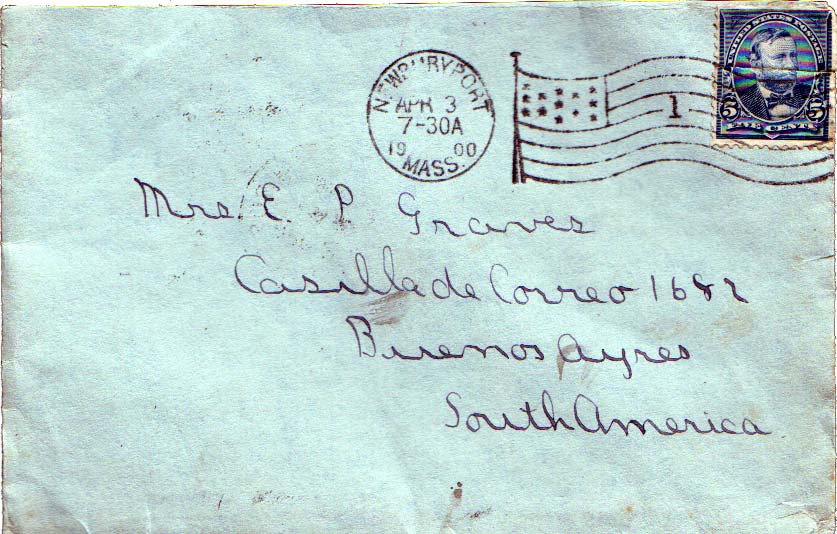 NEWBURYPORT
APR 3
7-30A
19 00
MASS.
1
UNITED STATES POSTAGE
5 5
FIVE CENTS
Mrs. E. P. Graves
Casilla de Correo 1682
Buenos Ayres
South America